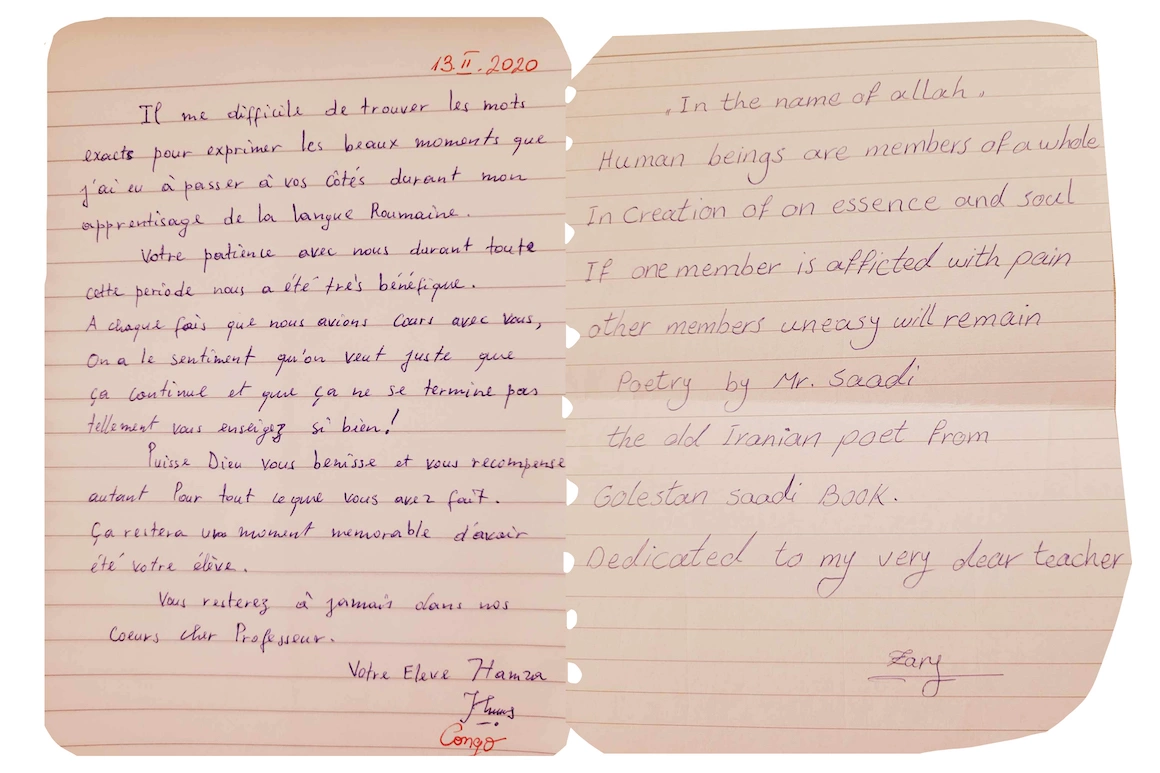 13.II.2020
Il me difficile de trouver les mots
exacts pour exprimer les beaux moments que
j'ai eu à passer à vos côtés durant mon
apprentisage de la langue Roumaine.
Votre patience avec nous durant toute
cette periode nous a été très bénéfique.
A chaque fois que nous avions Cours avec Vous,
On a le sentiment qu'on veut juste que
ça continue et que ça ne se termine pas
tellement vous enseigez si bien!
Puisse Dieu vous benisse et vous recompense
autant Pour tout ce que vous avez fait.
Ça restera un moment memorable d'avoir
été votre élève.
Vous resterez à jamais dans nos
Coeurs cher Professeur.
Votre Eleve Hamza
Congo
. In the name of allah .
Human beings are members of a whole
In Creation of on essence and soul
If one member is afficted with pain
other members uneasy will remain
Poetry by Mr. Saadi
the old Iranian poet From
Golestan saadi BOOK.
Dedicated to my very dear teacher
Zary